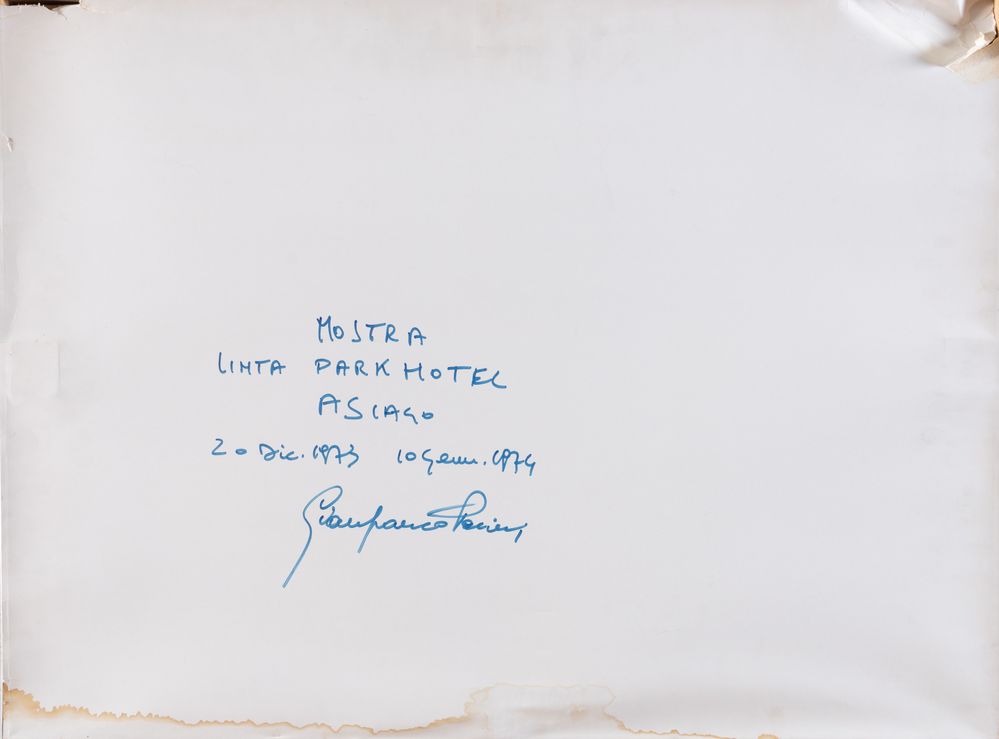 MOSTRA
LINTA PARK HOTEL
ASIAGO
20 Dic. 1973 10 Genn. 1974
Gianfranco